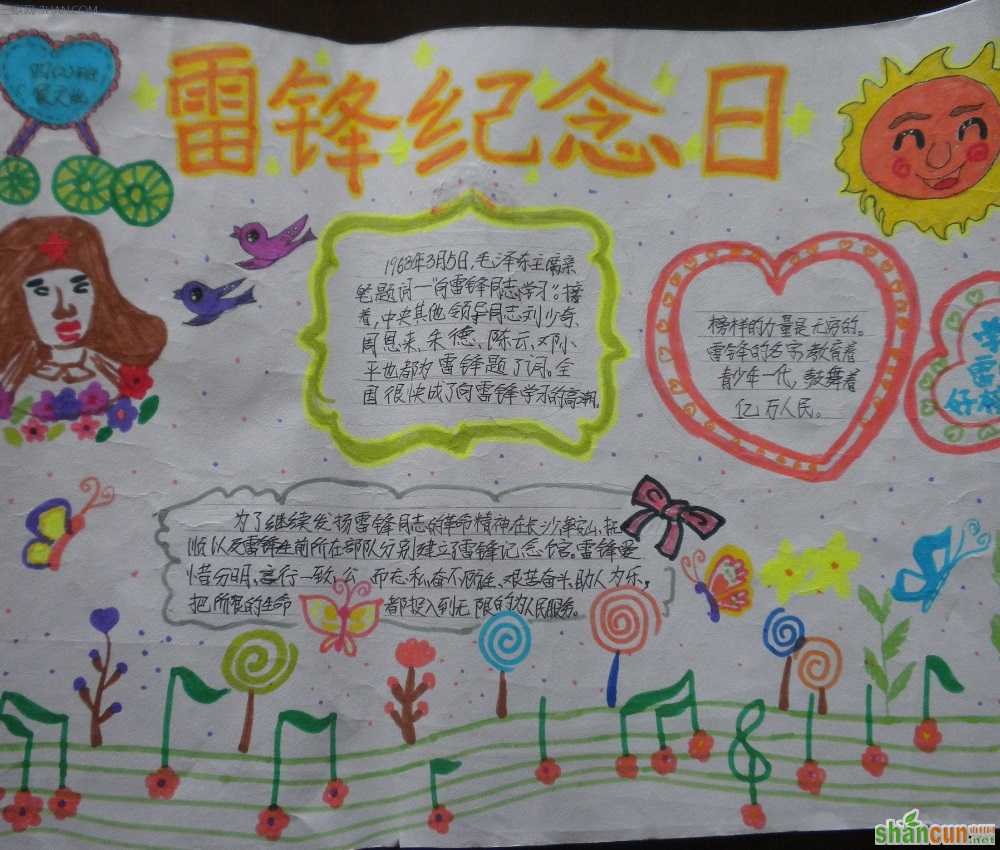 雷锋纪念日
1963年3月5日,毛泽东主席亲
笔题词一向雷锋同志学习"。接
着,中央其他领导同志刘少奇、
周恩来、朱德、陈云、邓小
平也都为雷锋题了词。全
国很快成了向雷锋学习的高潮。
榜样的力量是无穷的。
雷锋的名字教育着
青少年一代,鼓舞着
亿万人民。
学
雷
好榜
为了继续发扬雷锋同志的革命精神在长沙
顺以及雷锋生前所在部队分别建立了雷锋纪念馆。雷锋爱
憎分明、言行一致、公而忘私、奋不顾身、艰苦奋斗、助人为乐,
把所有的生命都投入到无限的为人民服务。
shancun
.net